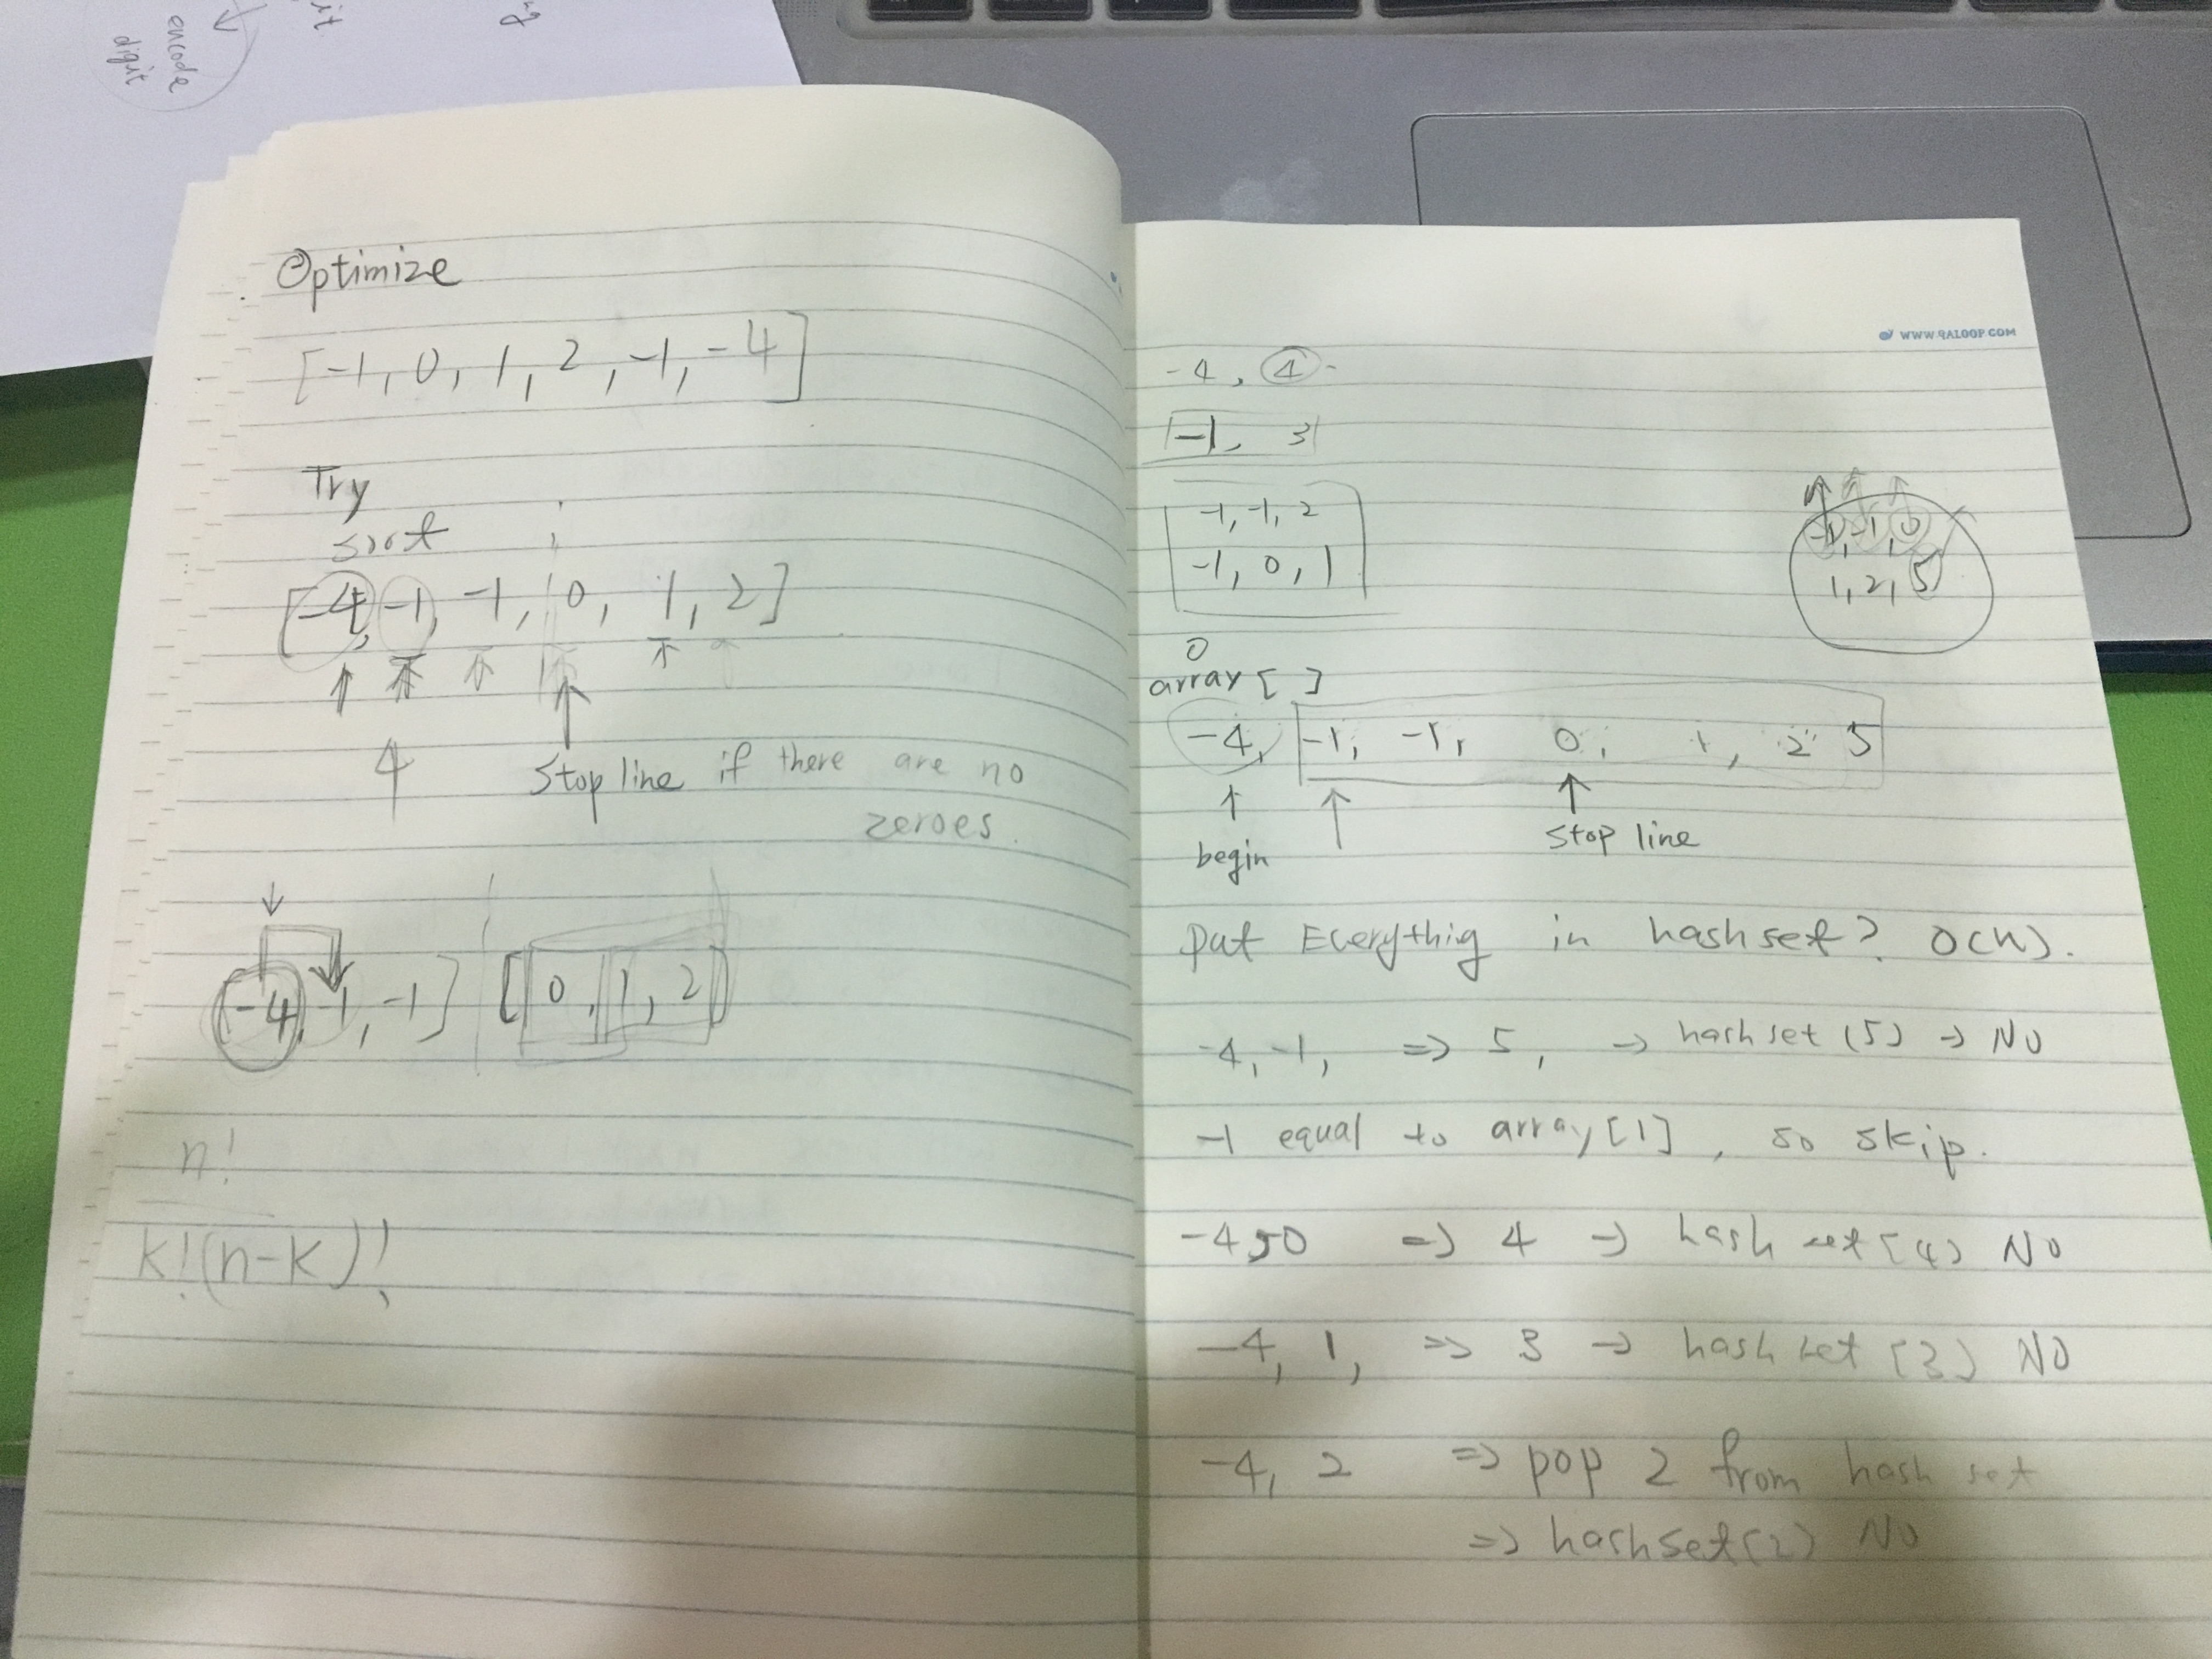 encode
digit
it
Optimize
[-1, 0, 1, 2, -1, -4]
Try
sort
[-4, -1, -1, 0, 1, 2]
4
Stop line if there are no
zeroes.
[-4, -1, -1] [0, 1, 2]
n!
k!(n-k)!
WWW.9ALOOP.COM
-4, 4
-1, 3
-1, -1, 2
-1, 0, 1
-1, -1, 0
1, 2, 5
0
array [ ]
-4, -1, -1, 0, 1, 2 5
begin
Stop line
put Everythig in hashset? O(n).
-4, -1, => 5, -> hashset (5) -> No
-1 equal to array[1], so skip.
-4, 0 => 4 -> hash set (4) No
-4, 1, => 3 -> hash set (3) No
-4, 2 => pop 2 from hash set
=> hashset(2) No